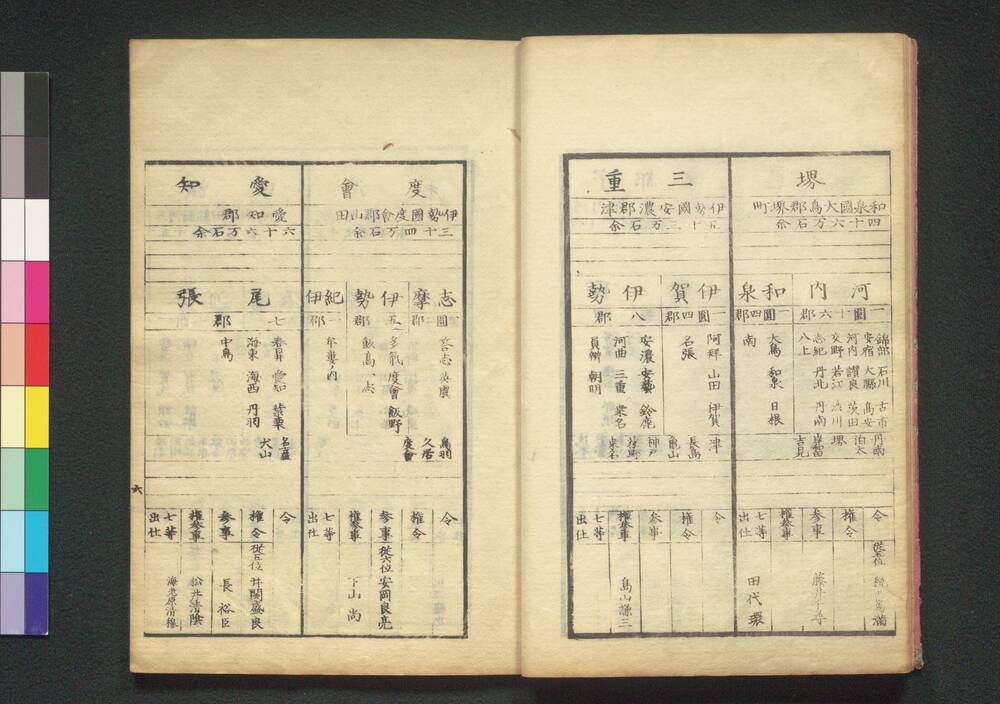 堺
和泉國大鳥郡堺町
四十六万石余
河内
一國十六郡
錦部 石川 古市
安宿 大縣 高安
河内 讃良 茨田
交野 若江 渋川
志紀 丹北 丹南
八上
丹南
伯太
堺
吉見
和泉
一國四郡
大鳥 和泉 日根
南
令 従五位
權令
参事
權参事
七等出仕 田代環
三重
伊勢國安濃郡津
伊賀
一國四郡
阿拜 山田 伊賀
名張
伊勢
八郡
安濃 安藝 鈴鹿
河曲 三重 桒名
員辨 朝明
津
長島
亀山
神戸
桒名
令
權令
参事
權参事 島山謙三
七等出仕
度會
伊勢國度會郡山田
三十四万石余
志摩
一國二郡
答志 英虞
伊勢
五郡
多氣 度會 飯野
飯高 一志
紀伊
一郡
牟婁ノ内
鳥羽
久居
度會
令
權令
参事 従六位 安岡良亮
權参事 下山尚
七等出仕
愛知
愛知郡
六十六万石余
尾張
七郡
春日井 愛知 葉栗
海東 海西 丹羽
中島
名古屋
犬山
令
權令 従五位 井関盛良
参事 長裕臣
權参事 松井清蔭
七等出仕 海老原清穆
六